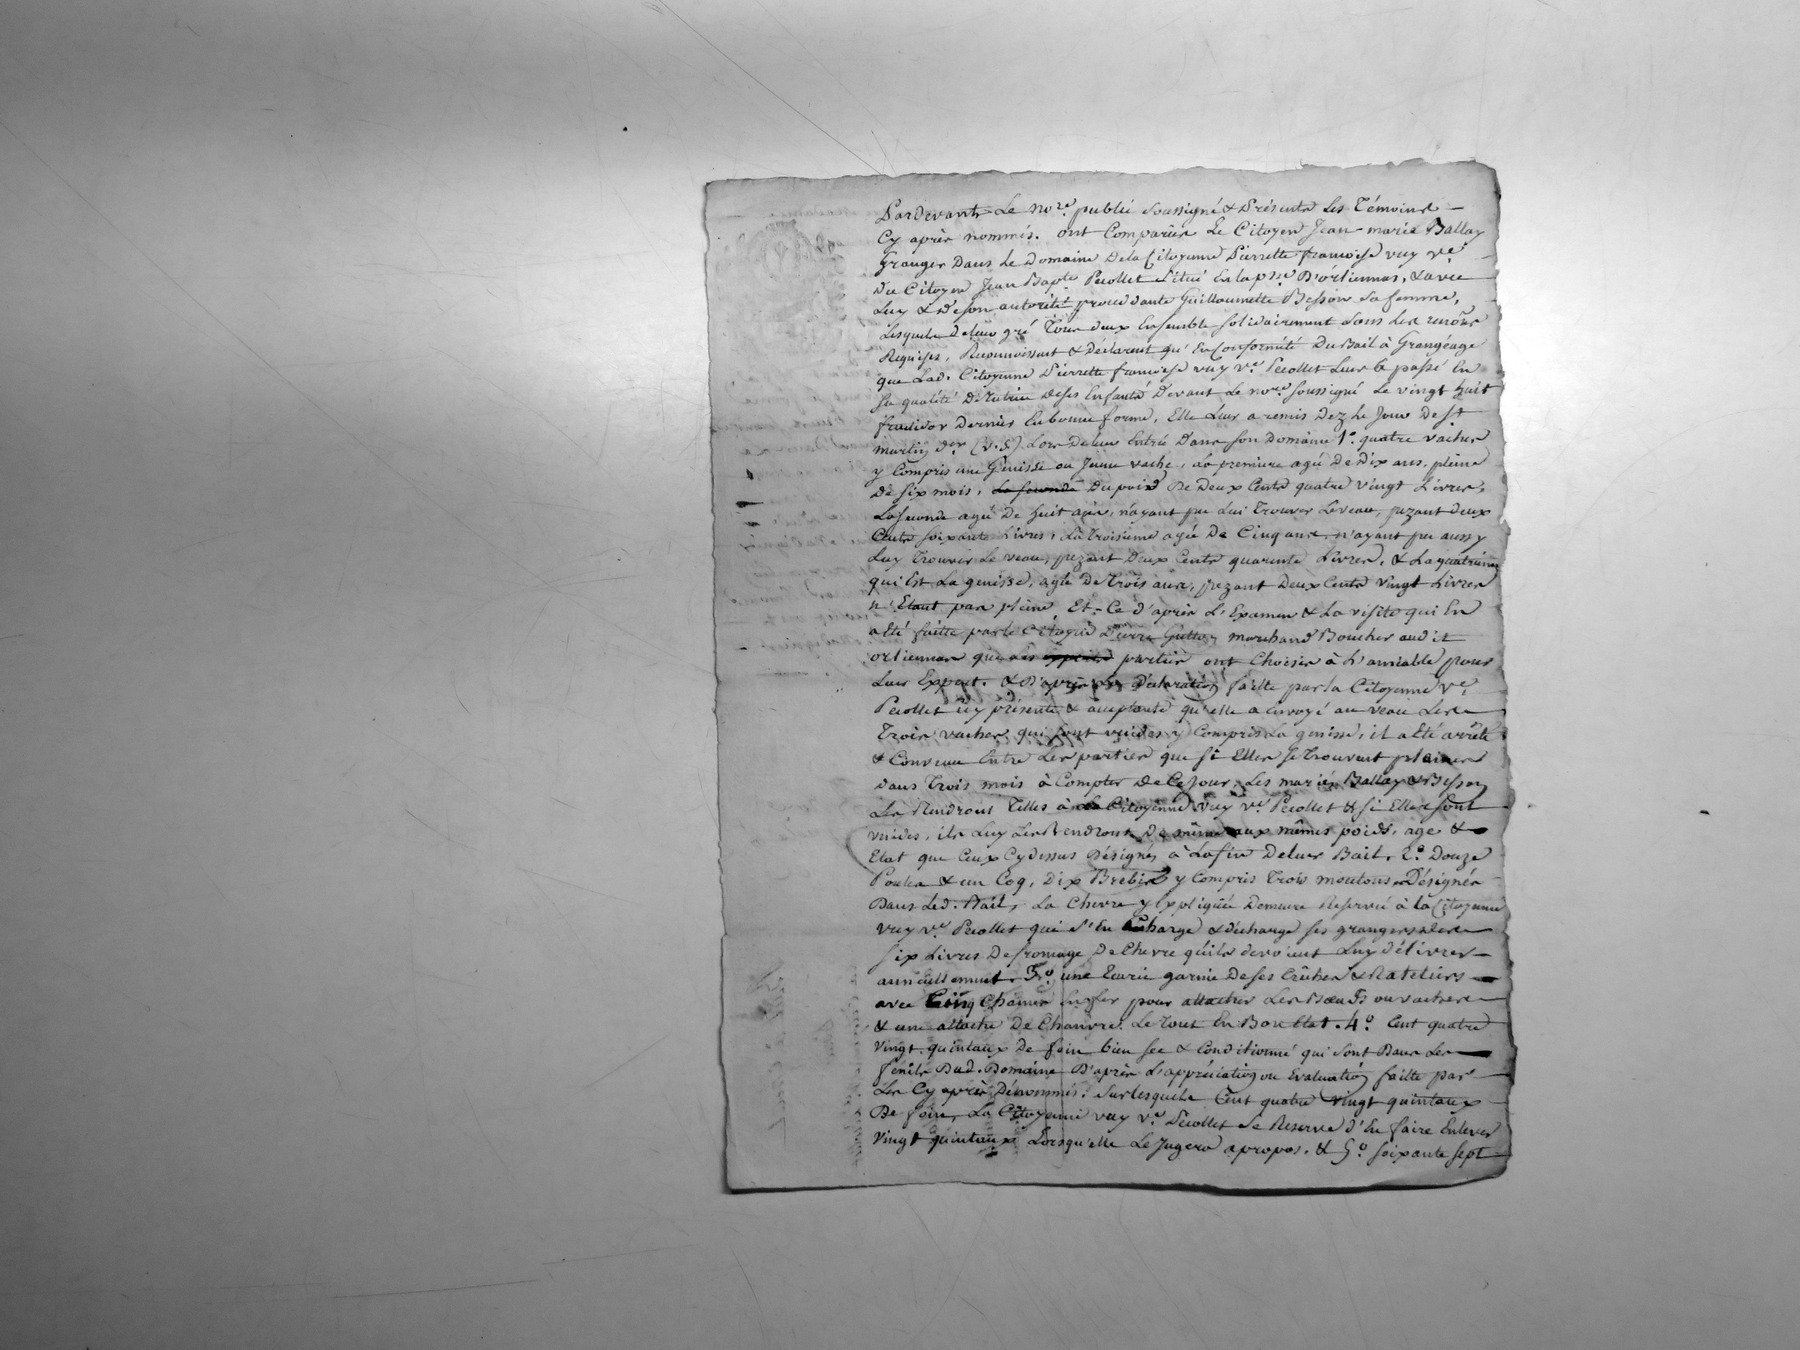 Pardevant Le no.re public Soussigné & Présents Les Témoins
Cy après nommés. ont Comparus Le Citoyen Jean-marie Ballay
Granger Dans Le Domaine De la Citoyenne Pierrette françoise vuy v.e
Du Citoyen Jean Bap.te Pecollet Situé En la p.sse D'ortiennas, & avec
Luy & De son autorité procedante Guillaumette Besson Sa femme,
Lesquels de leur gré Tous deux Ensemble solidairement sous les
Requises, Reconnoissent & Déclarent qu'En Conformité Du Bail à Grangéage
que Lad. Citoyenne Pierrette françoise vuy v.e Pecollet Leur à passé En
sa qualité De Tutrice de ses Enfants Devant Le no.re soussigné Le vingt huit
fructidor Dernier En bonne forme, Elle Leur a remis Dez Le Jour de S.t
martin d.er (v.S) Lors De leur Entrée Dans son Domaine 1.o quatre vaches
y Compris une Génisse ou Jeune vache, La premiere agée De Dix ans, pleine
De six mois, La seconde Du poids De Deux Cents quatre vingt Livres,
La seconde agée De huit ans, n'ayant pu Lui Trouver Le veau, pezant deux
Cents soixante Livres, La Troisieme agée De Cinq ans, n'ayant pu aussy
Luy Trouver Le veau, pezant Deux Cents quarente Livres, & La quatrieme
qui Est La genisse, agée De Trois ans, pezant Deux Cents vingt Livres
n'Etant pas pleine Et Ce d'après L'Examen & La visite qui En
a Eté faitte par le Citoyen Pierre marchand Boucher audit
ortiennas que Les parties ont Choisis à L'amiable pour
Leur Expert. & D'après La Déclaration faitte par la Citoyenne v.e
Pecollet icy présente & acceptante qu'elle a Envoyé au veau Les
Trois vaches qui sont vuides y Compris La genisse, il a Eté arrêté
& Convenu Entre Les parties que si Elles se Trouvent pleines
dans Trois mois à Compter De Ce Jour, Les mariés Ballay & Besson
Les Rendront Telles à La Citoyenne vuy v.e Pecollet & si Elles sont
vuides, ils Luy Les Rendront De même aux mêmes poids, age &
Etat que Ceux Cy dessus Désignés à La fin De leur Bail. 2.o Douze
Poules & un Coq, Dix Brebis y Compris Trois moutons Désignés
Dans Led. Bail, La Chevre y Expliquée Demeure Reservée à la Citoyenne
vuy v.e Pecollet qui s'En Charge & décharge ses grangers des
six Livres De fromage De Chevre qu'ils devoient Luy délivrer
annuellement. 3.o une Ecurie garnie De ses Crêches & Rateliers
avec Cinq Chaines En fer pour attacher Les Boeufs ou vaches
& une attache De Chanvre. Le Tout En Bon Etat. 4.o Cent quatre
vingt quintaux De foin bien sec & Conditionné qui sont Dans Les
fenils Dud. Domaine D'après L'appréciation ou Evaluation faitte par
Les Cy après Dénommés. Sur Lesquels Cent quatre vingt quintaux
De foin, La Citoyenne vuy v.e Pecollet Se Reserve d'En faire Enlever
vingt quintaux Lorsqu'elle Le Jugera apropos. & 5.o soixante sept